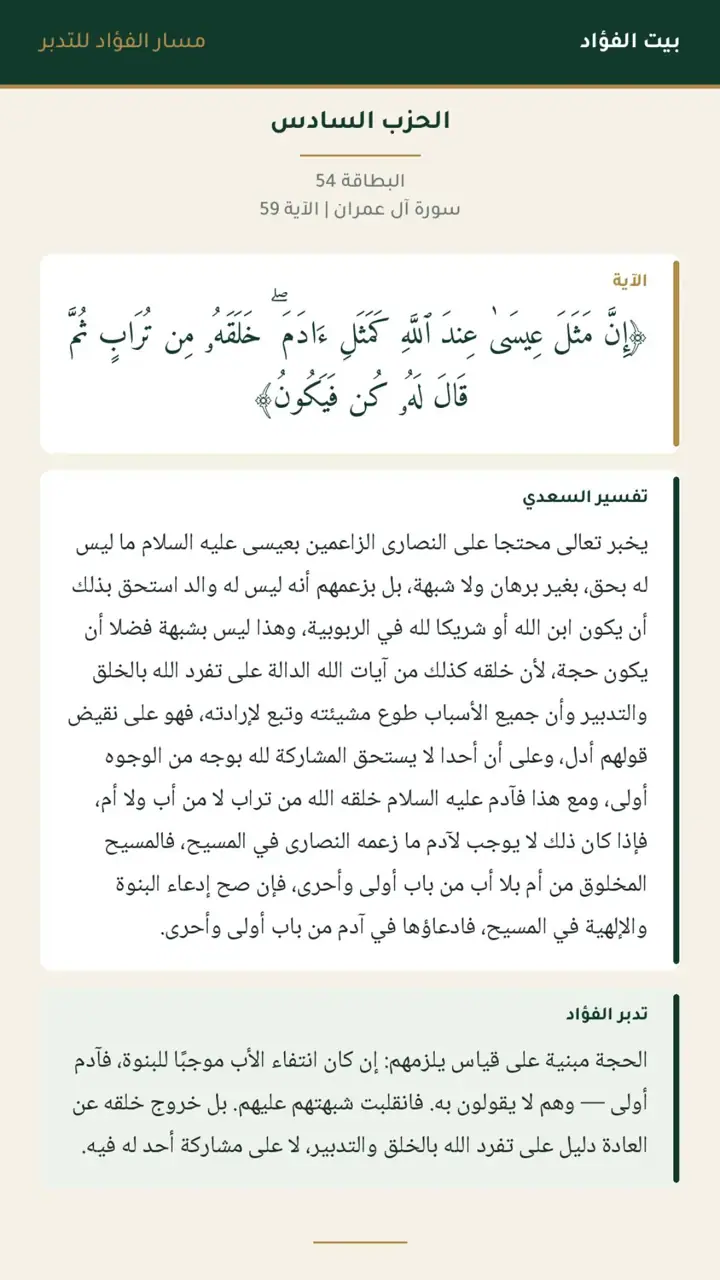 بيت الفؤاد
مسار الفؤاد للتدبر
الحزب السادس
البطاقة 54
سورة آل عمران | الآية 59
الآية
﴿إِنَّ مَثَلَ عِيسَىٰ عِندَ ٱللَّهِ كَمَثَلِ ءَادَمَ ۖ خَلَقَهُۥ مِن تُرَابٍ ثُمَّ
قَالَ لَهُۥ كُن فَيَكُونُ﴾
تفسير السعدي
يخبر تعالى محتجا على النصارى الزاعمين بعيسى عليه السلام ما ليس
له بحق، بغير برهان ولا شبهة، بل بزعمهم أنه ليس له والد استحق بذلك
أن يكون ابن الله أو شريكا لله في الربوبية، وهذا ليس بشبهة فضلا أن
يكون حجة، لأن خلقه كذلك من آيات الله الدالة على تفرد الله بالخلق
والتدبير وأن جميع الأسباب طوع مشيئته وتبع لإرادته، فهو على نقيض
قولهم أدل، وعلى أن أحدا لا يستحق المشاركة لله بوجه من الوجوه
أولى، ومع هذا فآدم عليه السلام خلقه الله من تراب لا من أب ولا أم،
فإذا كان ذلك لا يوجب لآدم ما زعمه النصارى في المسيح، فالمسيح
المخلوق من أم بلا أب من باب أولى وأحرى، فإن صح إدعاء البنوة
والإلهية في المسيح، فادعاؤها في آدم من باب أولى وأحرى.
تدبر الفؤاد
الحجة مبنية على قياس يلزمهم: إن كان انتفاء الأب موجبًا للبنوة، فآدم
أولى — وهم لا يقولون به. فانقلبت شبهتهم عليهم. بل خروج خلقه عن
العادة دليل على تفرد الله بالخلق والتدبير، لا على مشاركة أحد له فيه.